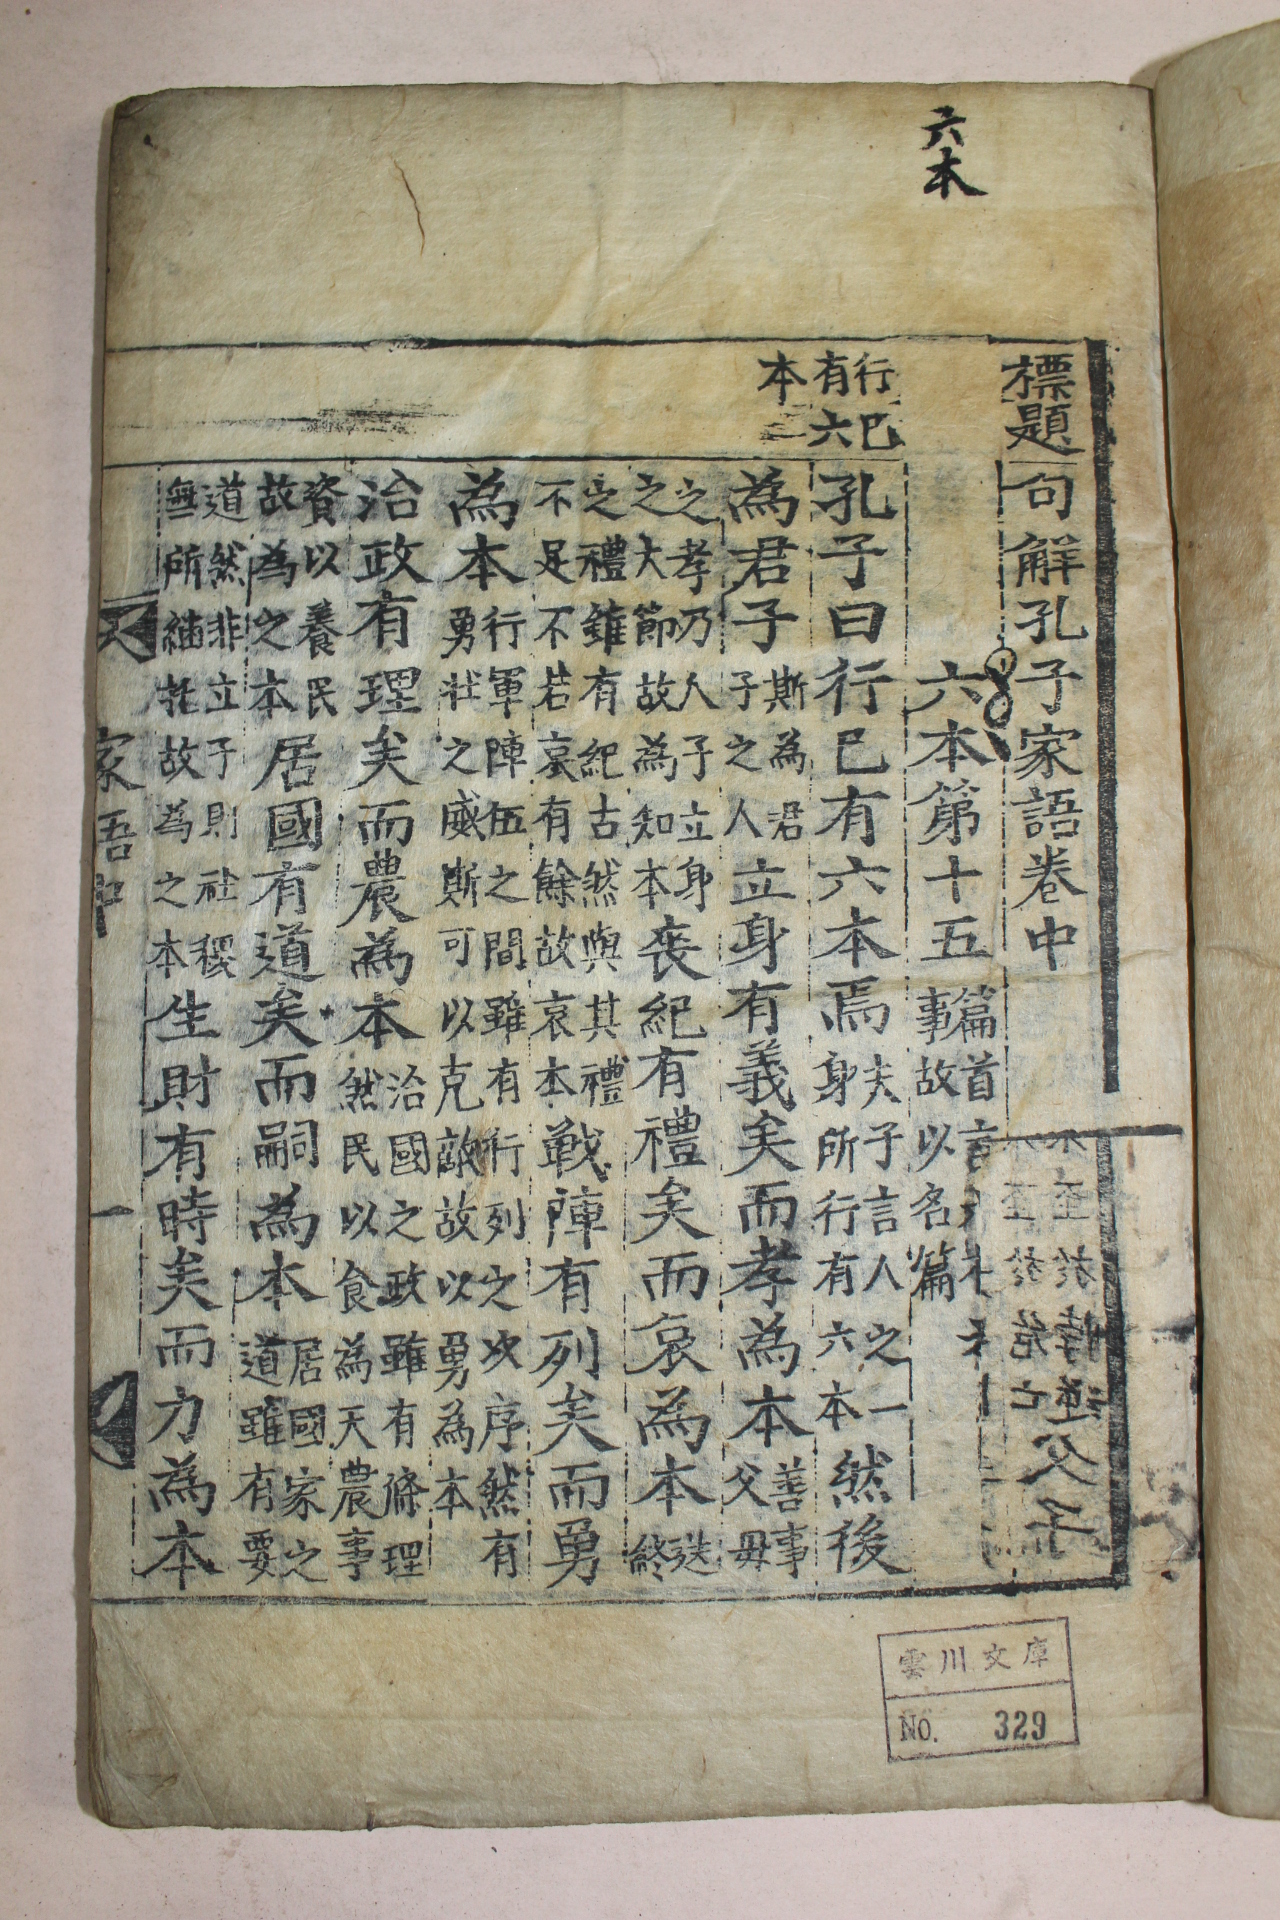 六本
標題句解孔子家語卷中
六本第十五 篇首言六本事故以名篇
行已有六本
孔子曰行已有六本焉 夫子言人之一身所行有六本 然後
為君子 斯為君子之人 立身有義矣而孝為本 善事父母
之孝乃人子立身之大節故為知本 喪紀有禮矣而哀為本 送終
之禮雖有紀古然與其禮不足不若哀有餘故哀本 戰陣有列矣而勇
為本 行軍陣伍之間雖有行列之次序然有勇壯之威斯可以克敵故以勇為本
治政有理矣而農為本 治國之政雖有條理然民以食為天農事
資以養民故為之本 居國有道矣而嗣為本 居國家之道雖有要
道然非立子則社稷無所繼托故為之本 生財有時矣而力為本
家語中 一
雲川文庫
NO. 329